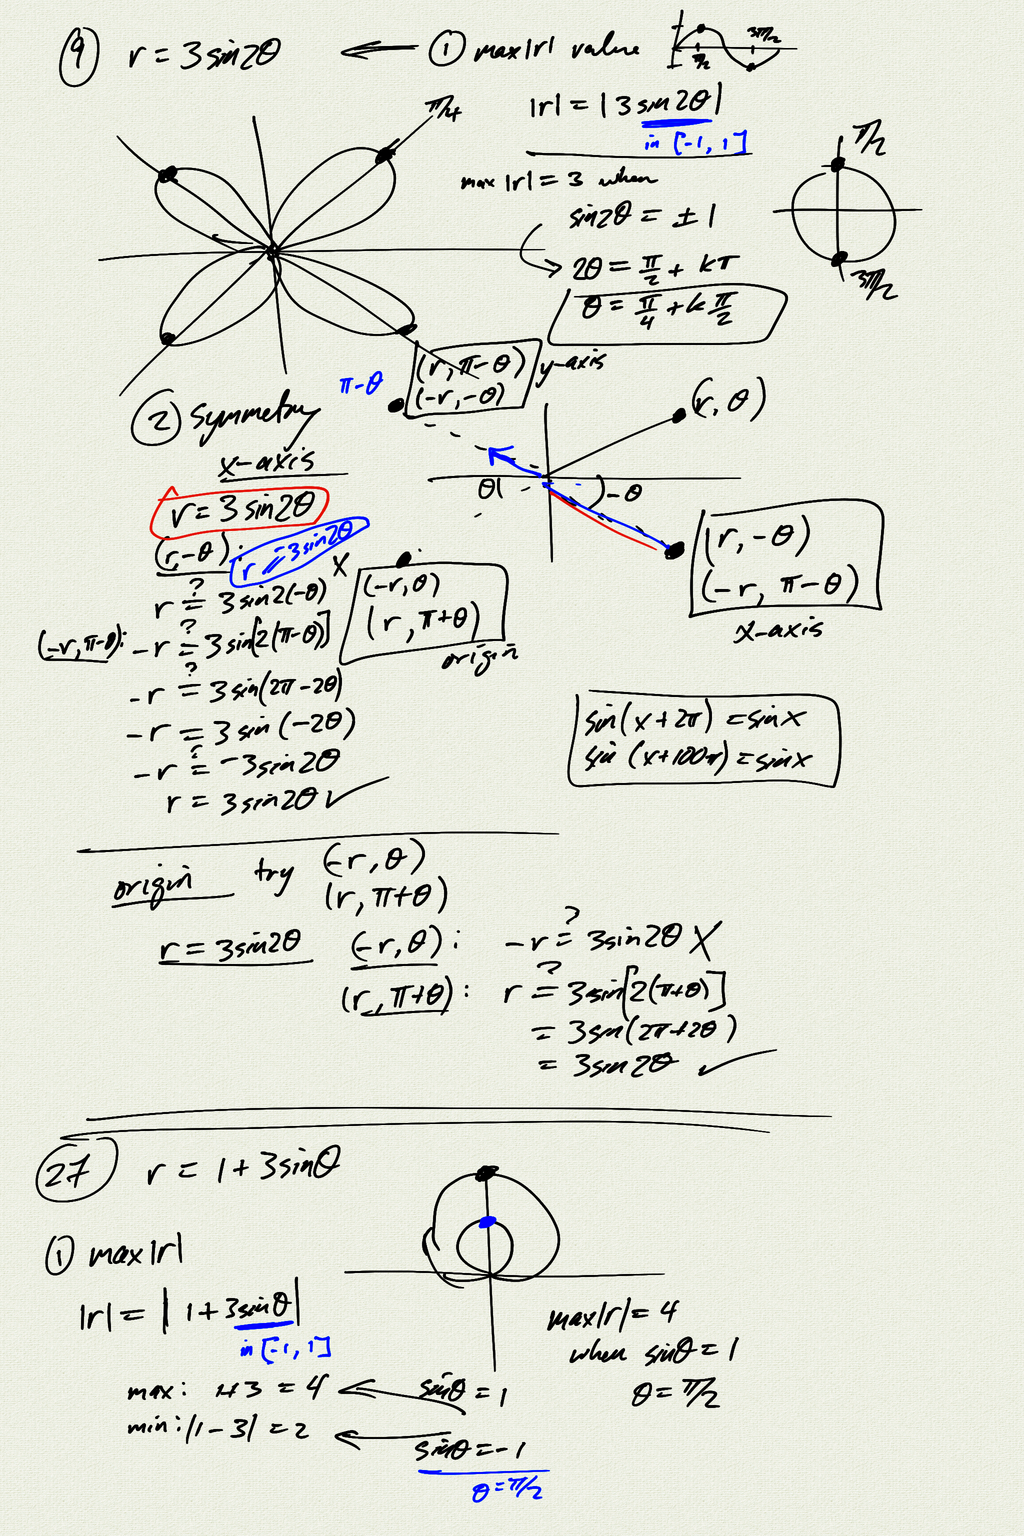 9 r = 3sin2θ ← ① max|r| value
π/2 3π/2
|r| = |3 sin2θ|
in [-1, 1]
π/4
max|r| = 3 when
sin2θ = ±1
2θ = π/2 + kπ
θ = π/4 + k π/2
π/2
3π/2
π-θ
(r, π-θ) y-axis
(-r, -θ)
(r, θ)
θ
-θ
(r, -θ)
(-r, π-θ)
x-axis
② Symmetry
x-axis
r = 3 sin2θ
(r,-θ): r = -3sin2θ X
r ?= 3sin2(-θ)
(-r, π-θ): -r ?= 3sin[2(π-θ)]
-r ?= 3sin(2π-2θ)
-r = 3 sin(-2θ)
-r ?= -3sin2θ
r = 3sin2θ ✓
(-r, θ)
(r, π+θ)
origin
sin(x+2π) = sinx
sin(x+100π) = sinx
origin try (-r, θ)
(r, π+θ)
r = 3sin2θ (-r, θ): -r ?= 3sin2θ X
(r, π+θ): r ?= 3sin[2(π+θ)]
= 3sin(2π+2θ)
= 3sin2θ ✓
27 r = 1 + 3sinθ
① max|r|
|r| = | 1 + 3sinθ |
in [-1, 1]
max: 1+3 = 4 ← sinθ = 1
min: |1-3| = 2 ← sinθ = -1
θ = π/2
max|r| = 4
when sinθ = 1
θ = π/2